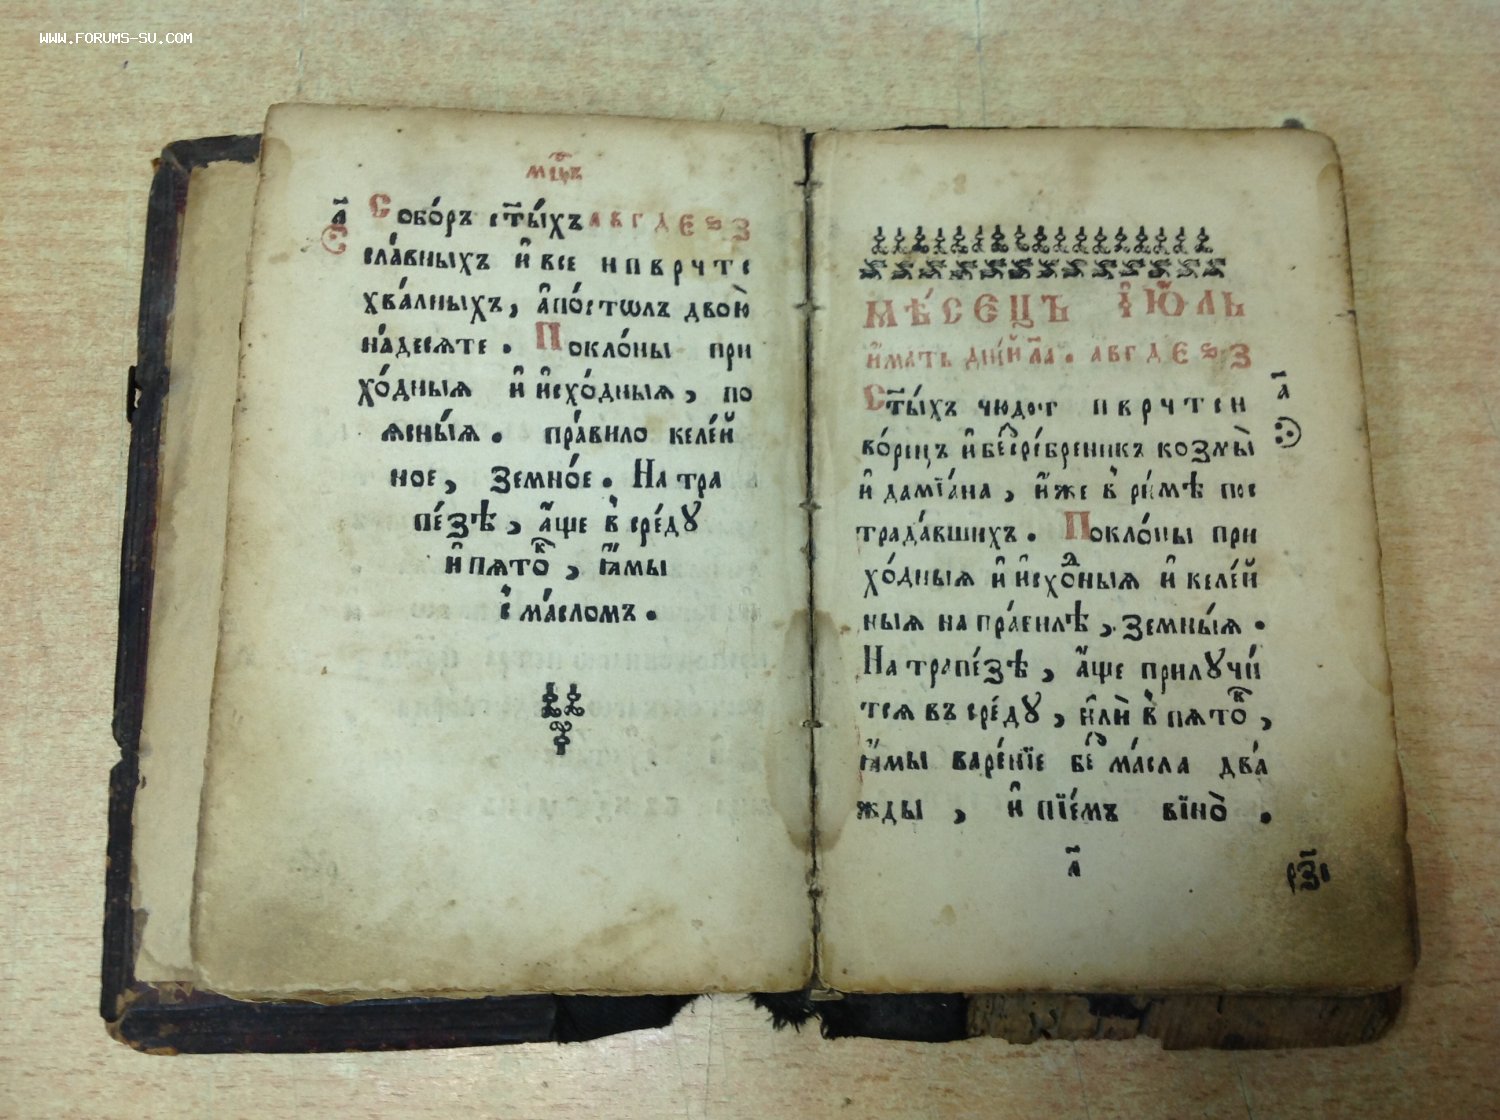 WWW.FORUMS-SU.COM
мцⷭ҇ъ
л҃
Собо́ръ ст҃ы́хъ а в г д е ѕ з
сла́вныхъ и҆ все н п в р ч т с
хва́лныхъ, а҆по́стѡлъ двою̀
на́десѧте. Покло́ны при
хо́дныѧ и҆ и҆схо́дныѧ, по
ѧсны́ѧ. пра́вило келе́й
ное, земно́е. На тра
пе́зѣ, а҆́ще в҆ сре́дꙋ
и҆ пѧто́ⷦ, ꙗ҆́мы
с҆ ма́сломъ.
МѢ́СЕЦЪ І҆Ю҆́ЛЬ
и҆́мать дні́й л҃а. а в г д е ѕ з
Ст҃ы́хъ чюдот н п в р ч т с
во́рецъ и҆ беⷥсре́бреникъ козмы̀
и҆ дамїа́на, и҆́же в҆ ри́мѣ пос
трада́вшихъ. Покло́ны при
хо́дныѧ и҆ и҆схо́ⷣныѧ и҆ келе́й
ныѧ на пра́вилѣ, земны́ѧ.
На трапе́зѣ, а҆́ще прилꙋчи́
тсѧ въ сре́дꙋ, и҆лѝ в҆ пѧто́ⷦ,
ꙗ҆́мы варе́нїе беⷥ ма́сла два́
жды, и҆ пїе́мъ вїно̀.
а҃
л҃
рз҃і